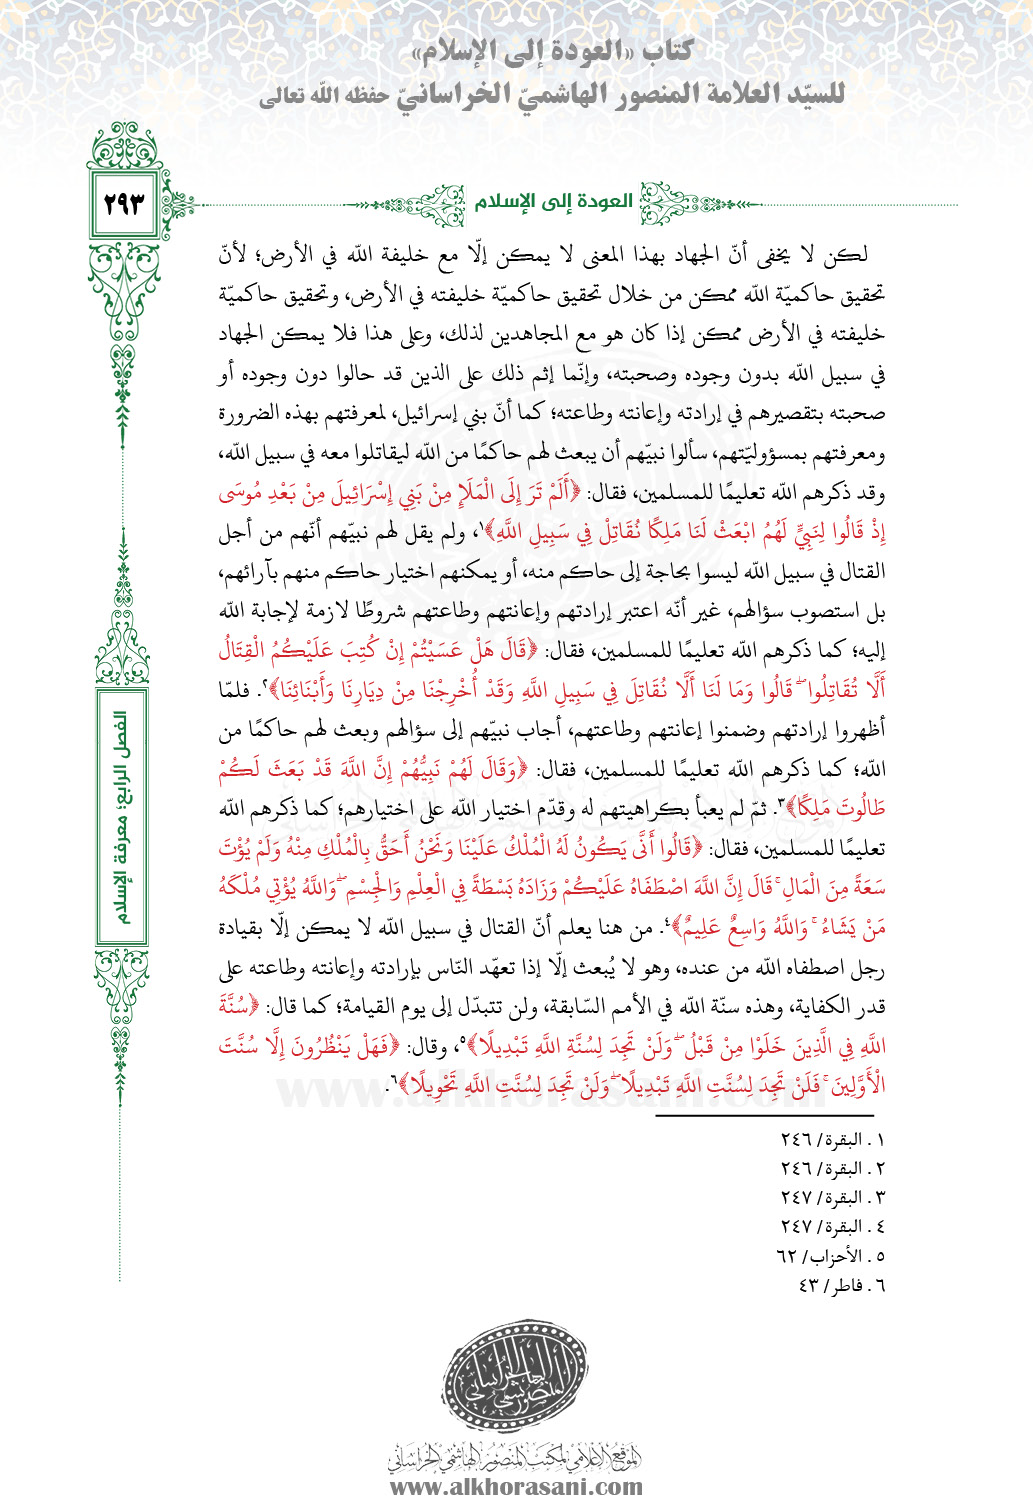 كتاب «العودة إلى الإسلام»
للسيّد العلامة المنصور الهاشميّ الخراسانيّ حفظه الله تعالى
٢٩٣
العودة إلى الإسلام
لكن لا يخفى أنّ الجهاد بهذا المعنى لا يمكن إلّا مع خليفة الله في الأرض؛ لأنّ
تحقيق حاكميّة الله ممكن من خلال تحقيق حاكميّة خليفته في الأرض، وتحقيق حاكميّة
خليفته في الأرض ممكن إذا كان هو مع المجاهدين لذلك، وعلى هذا فلا يمكن الجهاد
في سبيل الله بدون وجوده وصحبته، وإنّما إثم ذلك على الذين قد حالوا دون وجوده أو
صحبته بتقصيرهم في إرادته وإعانته وطاعته؛ كما أنّ بني إسرائيل، لمعرفتهم بهذه الضرورة
ومعرفتهم بمسؤوليّتهم، سألوا نبيّهم أن يبعث لهم حاكمًا من الله ليقاتلوا معه في سبيل الله،
وقد ذكرهم الله تعليمًا للمسلمين، فقال: ﴿أَلَمْ تَرَ إِلَى الْمَلَإِ مِنْ بَنِي إِسْرَائِيلَ مِنْ بَعْدِ مُوسَى
إِذْ قَالُوا لِنَبِيٍّ لَهُمُ ابْعَثْ لَنَا مَلِكًا نُقَاتِلْ فِي سَبِيلِ اللَّهِ﴾١، ولم يقل لهم نبيّهم أنّهم من أجل
القتال في سبيل الله ليسوا بحاجة إلى حاكم منه، أو يمكنهم اختيار حاكم منهم بآرائهم،
بل استصوب سؤالهم، غير أنّه اعتبر إرادتهم وإعانتهم وطاعتهم شروطًا لازمة لإجابة الله
إليه؛ كما ذكرهم الله تعليمًا للمسلمين، فقال: ﴿قَالَ هَلْ عَسَيْتُمْ إِنْ كُتِبَ عَلَيْكُمُ الْقِتَالُ
أَلَّا تُقَاتِلُوا ۖ قَالُوا وَمَا لَنَا أَلَّا نُقَاتِلَ فِي سَبِيلِ اللَّهِ وَقَدْ أُخْرِجْنَا مِنْ دِيَارِنَا وَأَبْنَائِنَا﴾٢. فلمّا
أظهروا إرادتهم وضمنوا إعانتهم وطاعتهم، أجاب نبيّهم إلى سؤالهم وبعث لهم حاكمًا من
الله؛ كما ذكرهم الله تعليمًا للمسلمين، فقال: ﴿وَقَالَ لَهُمْ نَبِيُّهُمْ إِنَّ اللَّهَ قَدْ بَعَثَ لَكُمْ
طَالُوتَ مَلِكًا﴾٣. ثمّ لم يعبأ بكراهيتهم له وقدّم اختيار الله على اختيارهم؛ كما ذكرهم الله
تعليمًا للمسلمين، فقال: ﴿قَالُوا أَنَّى يَكُونُ لَهُ الْمُلْكُ عَلَيْنَا وَنَحْنُ أَحَقُّ بِالْمُلْكِ مِنْهُ وَلَمْ يُؤْتَ
سَعَةً مِنَ الْمَالِ ۚ قَالَ إِنَّ اللَّهَ اصْطَفَاهُ عَلَيْكُمْ وَزَادَهُ بَسْطَةً فِي الْعِلْمِ وَالْجِسْمِ ۖ وَاللَّهُ يُؤْتِي مُلْكَهُ
مَنْ يَشَاءُ ۚ وَاللَّهُ وَاسِعٌ عَلِيمٌ﴾٤. من هنا يعلم أنّ القتال في سبيل الله لا يمكن إلّا بقيادة
رجل اصطفاه الله من عنده، وهو لا يُبعث إلّا إذا تعهّد النّاس بإرادته وإعانته وطاعته على
قدر الكفاية، وهذه سنّة الله في الأمم السّابقة، ولن تتبدّل إلى يوم القيامة؛ كما قال: ﴿سُنَّةَ
اللَّهِ فِي الَّذِينَ خَلَوْا مِنْ قَبْلُ ۖ وَلَنْ تَجِدَ لِسُنَّةِ اللَّهِ تَبْدِيلًا﴾٥، وقال: ﴿فَهَلْ يَنْظُرُونَ إِلَّا سُنَّتَ
الْأَوَّلِينَ ۚ فَلَنْ تَجِدَ لِسُنَّتِ اللَّهِ تَبْدِيلًا ۖ وَلَنْ تَجِدَ لِسُنَّتِ اللَّهِ تَحْوِيلًا﴾٦.
www.alkhorasani.com
١. البقرة/ ٢٤٦
٢. البقرة/ ٢٤٦
٣. البقرة/ ٢٤٧
٤. البقرة/ ٢٤٧
٥. الأحزاب/ ٦٢
٦. فاطر/ ٤٣
الفصل الرابع؛ معرفة الإسلام
الموقع الإعلامي لمكتب المنصور الهاشمي الخراساني
www.alkhorasani.com